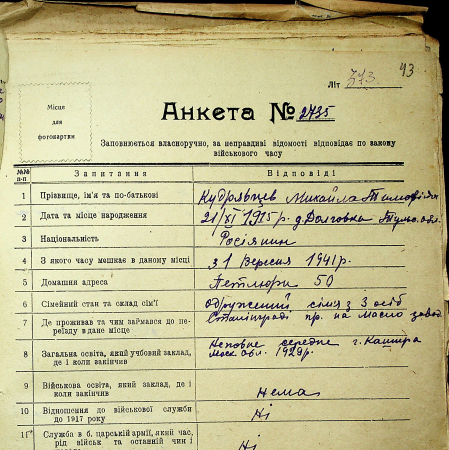 літ 373 93
Місце
для
фотокартки
Анкета № 2735
Заповнюється власноручно, за неправдиві відомості відповідає по закону
військового часу
№№ п-п Запитання Відповіді
1 Прізвище, ім'я та по-батькові Кудрявцев Михайла
2 Дата та місце народження 21/XI 1915 р. д. Долговка Тульс. обл.
3 Національність Росіянин
4 З якого часу мешкає в даному місці з 1 Вересня 1941 р.
5 Домашня адреса Петлюри 50
6 Сімейний стан та склад сім'ї одружений сімя з 3 осіб
7 Де проживав та чим займався до пе-
реїзду в дане місце Сталінграді пр. на Масло завод
8 Загальна освіта, який учбовий заклад,
де і коли закінчив Неповне середне г. Кашира
Моск обл. 1929 р.
9 Військова освіта, який заклад, де і
коли закінчив Нема
10 Відношення до військової служби
до 1917 року Ні
11 Служба в б. царській армії, який час,
рід військ та останній чин і Ні